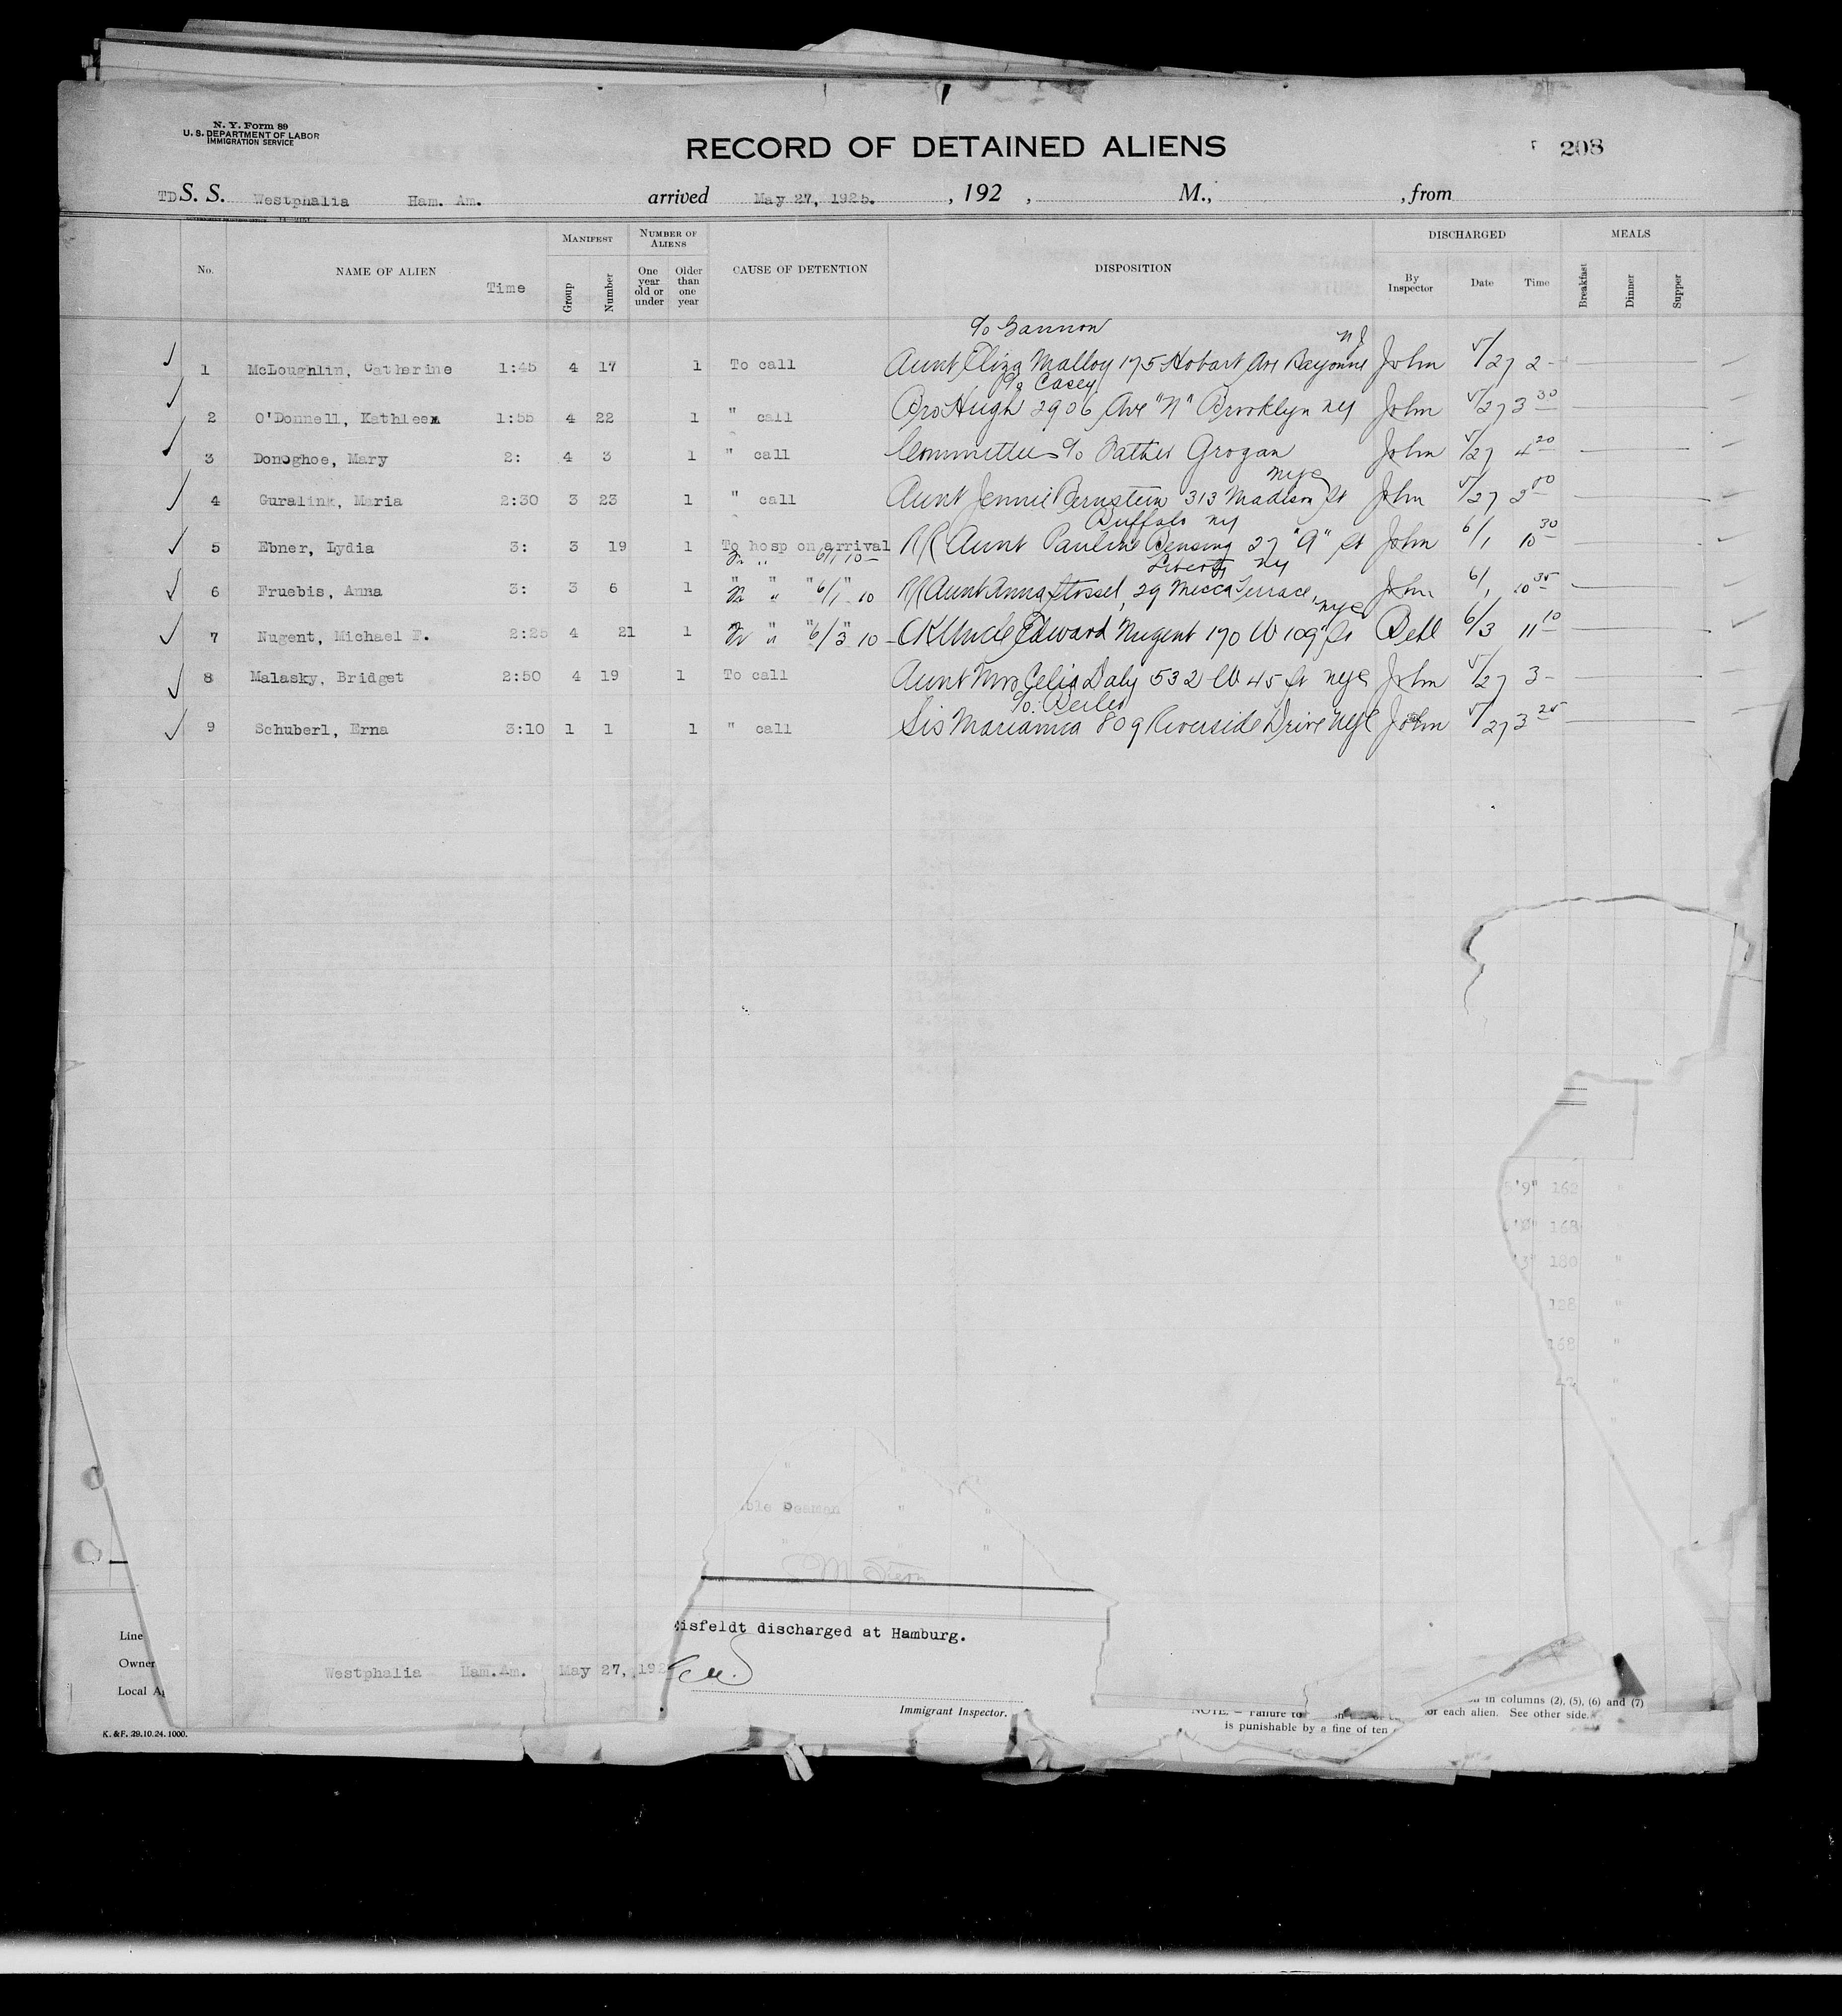 N. Y. Form 89
U. S. DEPARTMENT OF LABOR
IMMIGRATION SERVICE
RECORD OF DETAINED ALIENS
208
TD S. S. Westphalia Ham. Am. arrived May 27, 1925. , 192 , M., , from
No. NAME OF ALIEN Time MANIFEST Group Number NUMBER OF ALIENS One year old or under Older than one year CAUSE OF DETENTION DISPOSITION DISCHARGED By Inspector Date Time MEALS Breakfast Dinner Supper
c/o Gannon NJ
1 McLoughlin, Catherine 1:45 4 17 1 To call Aunt Eliza Malloy 175 Hobart Ave Bayonne John 5/27 2-
c/o Casey
2 O'Donnell, Kathleen 1:55 4 22 1 " call Bro Hugh 2906 Ave "N" Brooklyn NY John 5/27 3 30
3 Donoghoe, Mary 2: 4 3 1 " call Committee c/o Father Grogan John 5/27 4 20
NYC
4 Guralink, Maria 2:30 3 23 1 " call Aunt Jennie Bernstein 313 Madison St John 5/27
Buffalo NY
5 Ebner, Lydia 3: 3 19 1 To hosp on arrival RR Aunt Pauline Bensing 27 "A" St John 6/1 10 30
Fr " 6/1 10- Liberty NY
6 Fruebis, Anna 3: 3 6 1 " " " " RR Aunt Anna Stossel, 29 Mecca Terrace, John 6/1 10 35
Fr " 6/1 10 NYC
7 Nugent, Michael F. 2:25 4 21 1 " " " Fr " 6/3 10- OK Uncle Edward Nugent 170 W 109" St Bell 6/3 11 10
8 Malasky, Bridget 2:50 4 19 1 To call Aunt Mrs Celia Daly 532 W 45 St NYC John 5/27 3-
c/o
9 Schuberl, Erna 3:10 1 1 1 " call Sis Marianna 809 Riverside Drive NYC John 5/27 3 25
'9" 162 "
168
'3" 180 "
128 "
168 "
"
ble Seaman " "
" "
eisfeldt discharged at Hamburg.
Line
Owner
Westphalia Ham.Am. May 27, 192
Local A
Immigrant Inspector.
in columns (2), (5), (6) and (7)
NOTE. — Failure to or each alien. See other side.
is punishable by a fine of ten
K. & F. 29.10.24.1000.